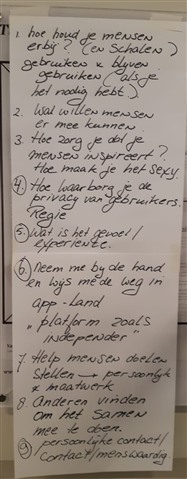 1. hoe houd je mensen
erbij? (en schalen)
gebruiken & blijven
gebruiken (als je
het nodig hebt)
2. Wat willen mensen
er mee kunnen
3. Hoe zorg je dat je
mensen inspireert?
Hoe maak je het sexy.
4. Hoe waarborg je de
privacy van gebruikers.
Regie
5. Wat is het gevoel/
experience.
6. Neem me bij de hand
en wijs me de weg in
app-land
"platform zoals
independer"
7. Help mensen doelen
stellen → persoonlijk
& maatwerk
8 Anderen vinden
om het samen
mee te doen.
9. persoonlijke contact/
contact/menswaardig.